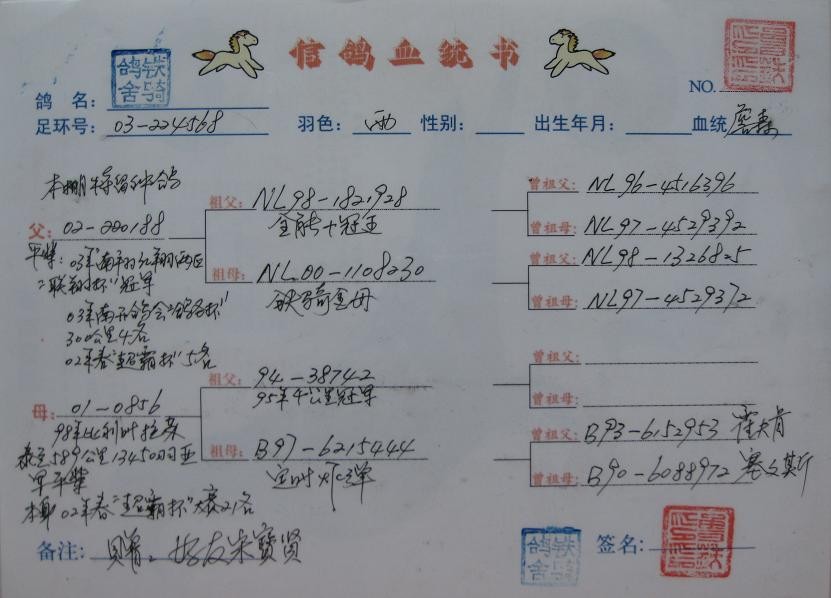 信鸽血统书
铁骑
鸽舍
NO.
鸽 名：
足环号： 03-224568 羽色： 雨 性别： 出生年月： 血统
本棚特留种鸽
父： 02-220188
平辈：03年南开红翔两区
"联翔杯"冠军
03年南开鸽会"鸽王杯"
300公里4名
02年春"超霸杯"5名
祖父： NL98-1821928
全能十冠王
祖母： NL00-1108230
铁骑金母
曾祖父： NL96-4516396
曾祖母： NL97-4529392
曾祖父： NL98-1326825
曾祖母： NL97-4529372
母： 01-0856
98年比利时拉菜
589公里13450羽亚
军平辈
本身02年春"超霸杯"大赛21名
祖父： 94-38742
95年千公里冠军
祖母： B97-6215444
定时炸弹
曾祖父：
曾祖母：
曾祖父： B93-6152953
曾祖母： B90-6088972
备注： 赠：好友宋宝贤
签名：
铁骑
鸽舍